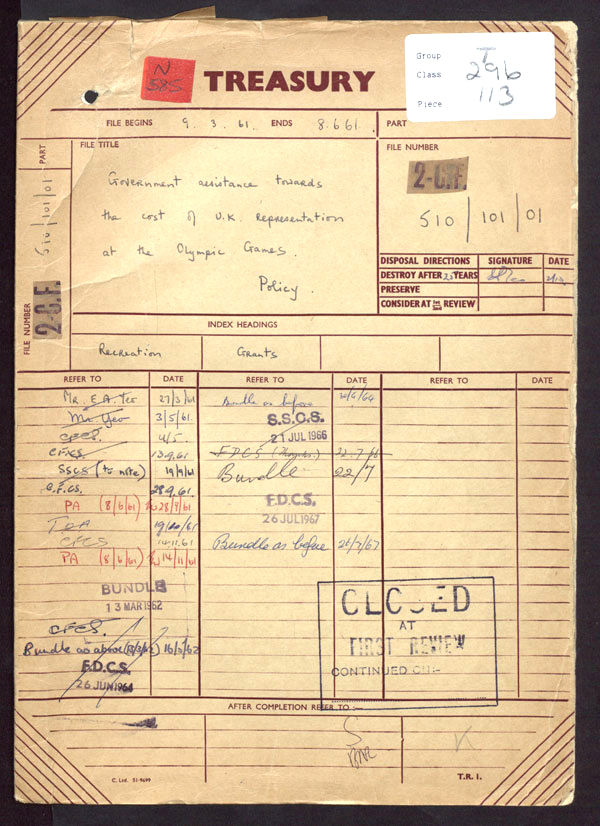 Group T
Class 296
Piece 113
N
585
TREASURY
FILE BEGINS 9.3.61. ENDS 8.6.61.
PART
FILE TITLE
Government assistance towards
the cost of U.K. Representation
at the Olympic Games.
Policy.
FILE NUMBER
2-C.F.
510/101/01
DISPOSAL DIRECTIONS SIGNATURE DATE
DESTROY AFTER 25 YEARS
PRESERVE
CONSIDER AT REVIEW
PART
510/101/01
2-C.F.
FILE NUMBER
INDEX HEADINGS
Recreation Grants
REFER TO DATE REFER TO DATE REFER TO DATE
Mr. E.A. Yeo 27/3/61
Mr Yeo 3/5/61.
CFCS. 4/5.
CFCS. 13.9.61.
SSCS (to note) 19/9/61
C.F.CS. 28.9.61.
PA (8/6/61) 28/9/61
TOA 19/10/61
CFCS 14.11.61
PA (8/6/61) 14/11/61
BUNDLE
13 MAR 1962
CFCS.
Bundle as above (13/3/62) 16/3/62
F.D.C.S.
26 JUN 1964
Bundle as before 26/6/64
S.S.C.S.
21 JUL 1966
FDCS 22.7.66
Bundle 22/7
F.D.C.S.
26 JUL 1967
Bundle as before 26/7/67
CLOSED
AT
FIRST REVIEW
CONTINUED ON:-
AFTER COMPLETION REFER TO :—
K
C. Ltd. 51-9699
T.R. 1.